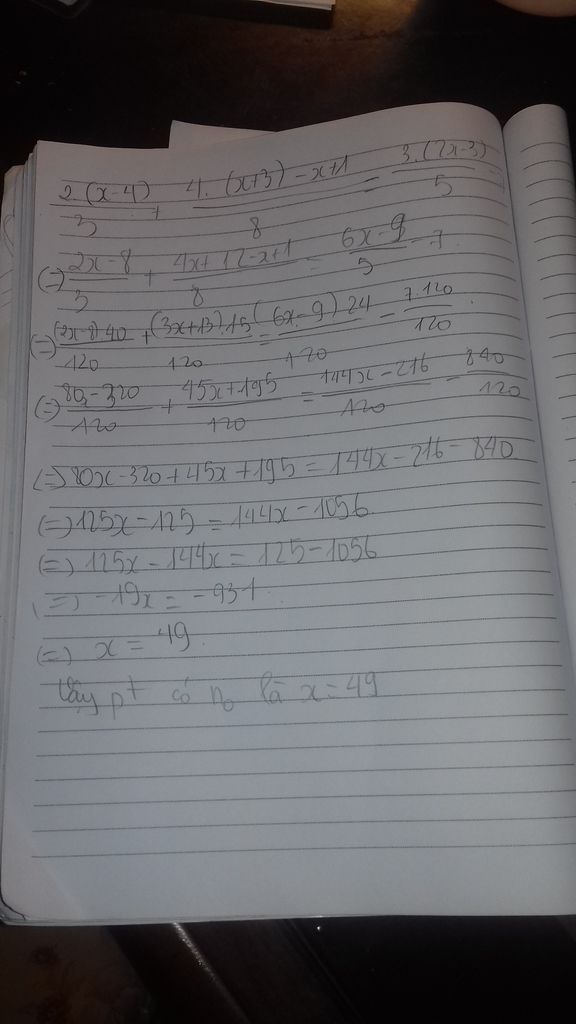 2.(x-4)/3 + 4.(x+3)-x+1/8 = 3.(2x-3)/5 -
(=) 2x-8/3 + 4x+12-x+1/8 = 6x-9/5 - 7
(=) (2x-8)40/120 + (3x+13).15/120 = (6x-9)24/120 - 7.120/120
(=) 80x-320/120 + 45x+195/120 = 144x-216/120 - 840/120
(=) 80x-320+45x+195=144x-216-840
(=) 125x-125=144x-1056
(=) 125x-144x=125-1056
(=) -19x=-931
(=) x=49
Vậy pt có no là x=49